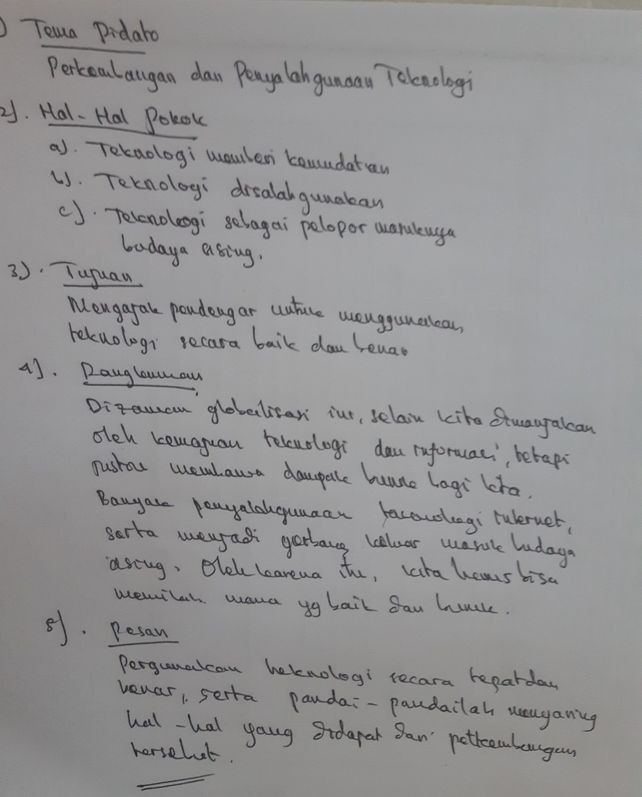 ) Tema Pidato
Perkembangan dan Penyalahgunaan Teknologi
2). Hal-Hal Pokok
a). Teknologi memberi kemudahan
b). Teknologi disalahgunakan
c). Teknologi sebagai pelopor masuknya
budaya asing.
3). Tujuan
Mengajak pendengar untuk menggunakan
teknologi secara baik dan benar
4). Rangkuman
Dizaman globalisasi ini, selain kita dimanjakan
oleh kemajuan teknologi dan informasi, tetapi
justru membawa dampak buruk bagi kita.
Banyak penyalahgunaan internet,
serta menjadi gerbang keluar masuk budaya
asing. Oleh karena itu, kita harus bisa
memilah mana yg baik dan buruk.
5). Pesan
Pergunakan teknologi secara tepat dan
benar, serta pandai-pandailah menyaring
hal-hal yang didapat dari perkembangan
tersebut.